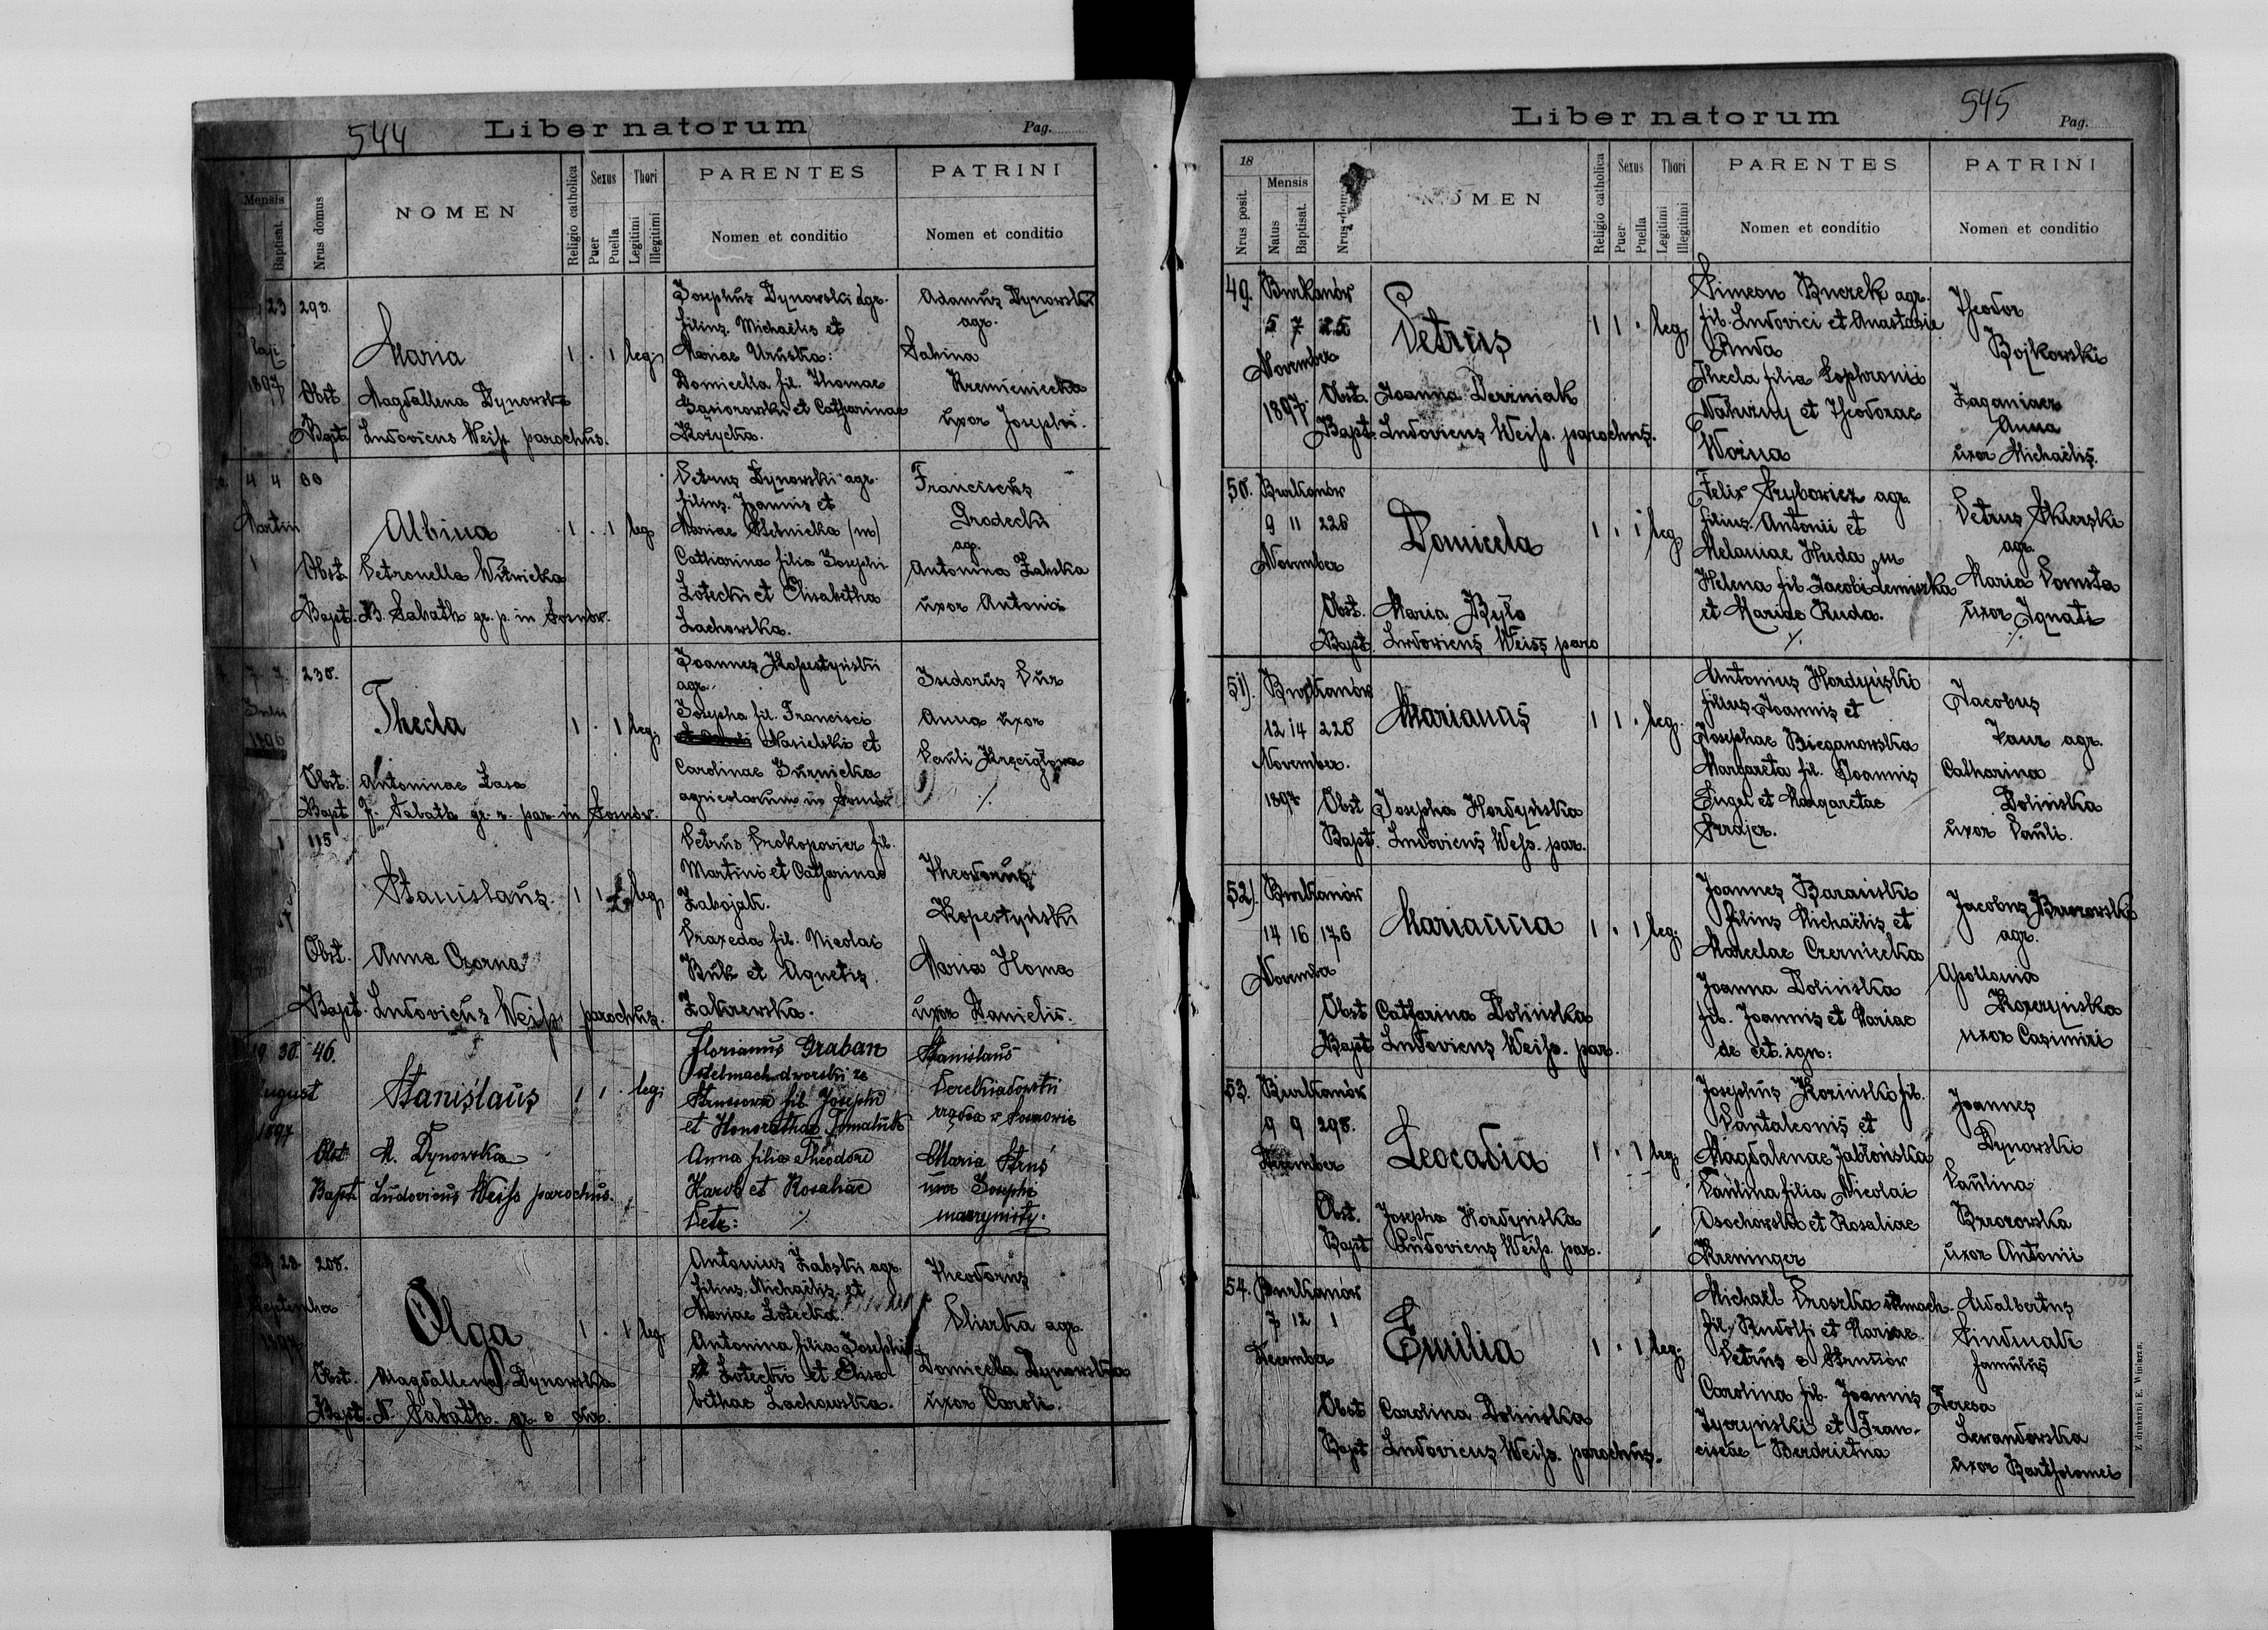 544 Liber natorum Pag.
Mensis
Baptisat.
Nrus domus
NOMEN
Religio catholica
Sexus
Puer
Puella
Thori
Legitimi
Illegitimi
PARENTES
Nomen et conditio
PATRINI
Nomen et conditio
23 293.
1897
Maria 1 . 1 leg.
Obst. Magdallena Dynowska
Bapt. Ludovicus Weiss parochus.
Josephus Dynowski agr.
filius Michaëlis et
Mariae Uruska:
Domicella fil. Thomae
Gąsiorowski et Catharinae
Kozycka.
Adamus Dynowski
agr.
Sabina
Kremieniecka
uxor Josephi.
4 4 60
Martii
Albina 1 . 1 leg
Obst. Petronella Witwicka
Bapt. B. Sabath gr. p. in Sosnów.
Petrus Dynowski agr.
filius Joannis et
Mariae (m)
Catharina filia Josephi
Łotecki et Elisabetha
Lachowska.
Franciscus
Grodecki
ag.
Antonina Zabska
uxor Antonii
7 7. 230.
Julii
1896
Thecla 1 . 1 leg.
Obst. Antoninae Łasa
Bapt. J. Sabath gr. r. par. in Sosnów.
Joannes Kopestyński
agr.
Josepha fil. Francisci
Nasielski et
Carolinae Gurnicka
agricolarum in Sosnów
Isidorus Pur
Anna uxor
Pauli
./.
1 115
Stanislaus. 1 1 leg.
Obst. Anna Czorna
Bapt. Ludovicus Weiss parochus.
Petrus Prokopowicz fil.
Martini et Catharinae
Zabojak.
Praxeda fil. Nicolai
Buk et Agnetis
Zakrzewska.
Theodorus
Kopestyński
Maria Homa
uxor Danielis.
19 30. 46.
August
1897
Stanislaus 1 1 . leg.
Obst M. Dynowska
Bapt. Ludovicus Weiss parochus.
Florianus Graban
stelmach dworski ze
Strussowa fil. Josephi
et Honorathae Tomaluk
Anna filia Theodori
Karob et Rosaliae
Petz: ./.
Stanislaus
rządca w Sosnowie
Maria Struś
uxor Josephi
maszynisty.
23. 208.
September
1897
Olga 1 . 1 leg.
Obst. Magdallena Dynowska
Bapt. Sabath. gr. c.
Antonius Zabski agr.
filius Michaëlis et
Mariae Łotecka.
Antonina filia Josephi
Łotecki et Elisa
bethae Lachowska.
Theodorus
agr.
Domicella Dynowska
uxor Caroli.
Liber natorum 545 Pag.
18
Nrus posit.
Mensis
Natus
Baptisat.
Nrus domus
NOMEN
Religio catholica
Sexus
Puer
Puella
Thori
Legitimi
Illegitimi
PARENTES
Nomen et conditio
PATRINI
Nomen et conditio
49. Burkanów
5 7 25
November
1897
Petrus 1 1 . leg.
Obst. Joanna Derzniak
Bapt. Ludovicus Weiss. parochus.
Simeon Buczek agr.
fil. Ludovici et Anastasie
Ruda
Thecla filia Sophronii
et Theodorae
Woźna
Theodor
Bojkowski
Zaganiacz
Anna
uxor Michaëlis.
50. Burkanów
9 11 228
November
Domicela 1 . 1 leg
Obst. Maria Było
Bapt. Ludovicus Weiss paro
Felix Grybowicz agr.
filius Antonii et
Melaniae Huda m
Helena fil. Jacobi
et Mariae Ruda.
./.
Petrus Skierski
agr.
Maria Pomsta
uxor Ignati
./.
51). Burkanów
12 14 228
November.
1897
Marianus 1 1 . leg.
Obst Josepha Hordyńska
Bapt. Ludovicus Weiss. par.
Antonius Hordyński
filius Joannis et
Josephae Bieganowska
Margareta fil. Joannis
Engel et Margaretae
Jacobus
Zaur agr.
Catharina
Dolińska
uxor Pauli.
52). Burkanów
14 16 176
Marianna 1 . 1 leg.
Obst Catharina Dolińska
Bapt Ludovicus Weiss. par.
Joannes Barański
filius Michaëlis et
Marcelae Czerniecka
Joanna Dolińska
fil. Joannis et Mariae
de cet. ign:
Jacobus Brzozowski
agr.
Apollonia
Kozeryńska
uxor Casimiri
53. Burkanów
9 9 298.
December
Leocadia 1 . 1 leg
Obst. Josepha Hordyńska
Bapt Ludovicus Weiss. par.
Josephus Kozinski fil.
Pantaleonis et
Magdalenae Jabłońska
Paulina filia Nicolai
Osochowski et Rosaliae
Kreninger
Joannes
Dynowski
Paulina
Brzozowska
uxor Antonii
54. Burkanów
7 12 1
December
Emilia 1 . 1 leg.
Obst Carolina Dolińska
Bapt Ludovicus Weiss. parochus.
Michaël Proszka stelmach
fil. Rudolfi et Mariae
Petrus e Strusów
Carolina fil. Joannis
Jyczynski et Fran-
ciscae
Adalbertus
famulus
Teresa
Lewandowska
uxor Bartholomei
Z drukarni E. Winiarza.